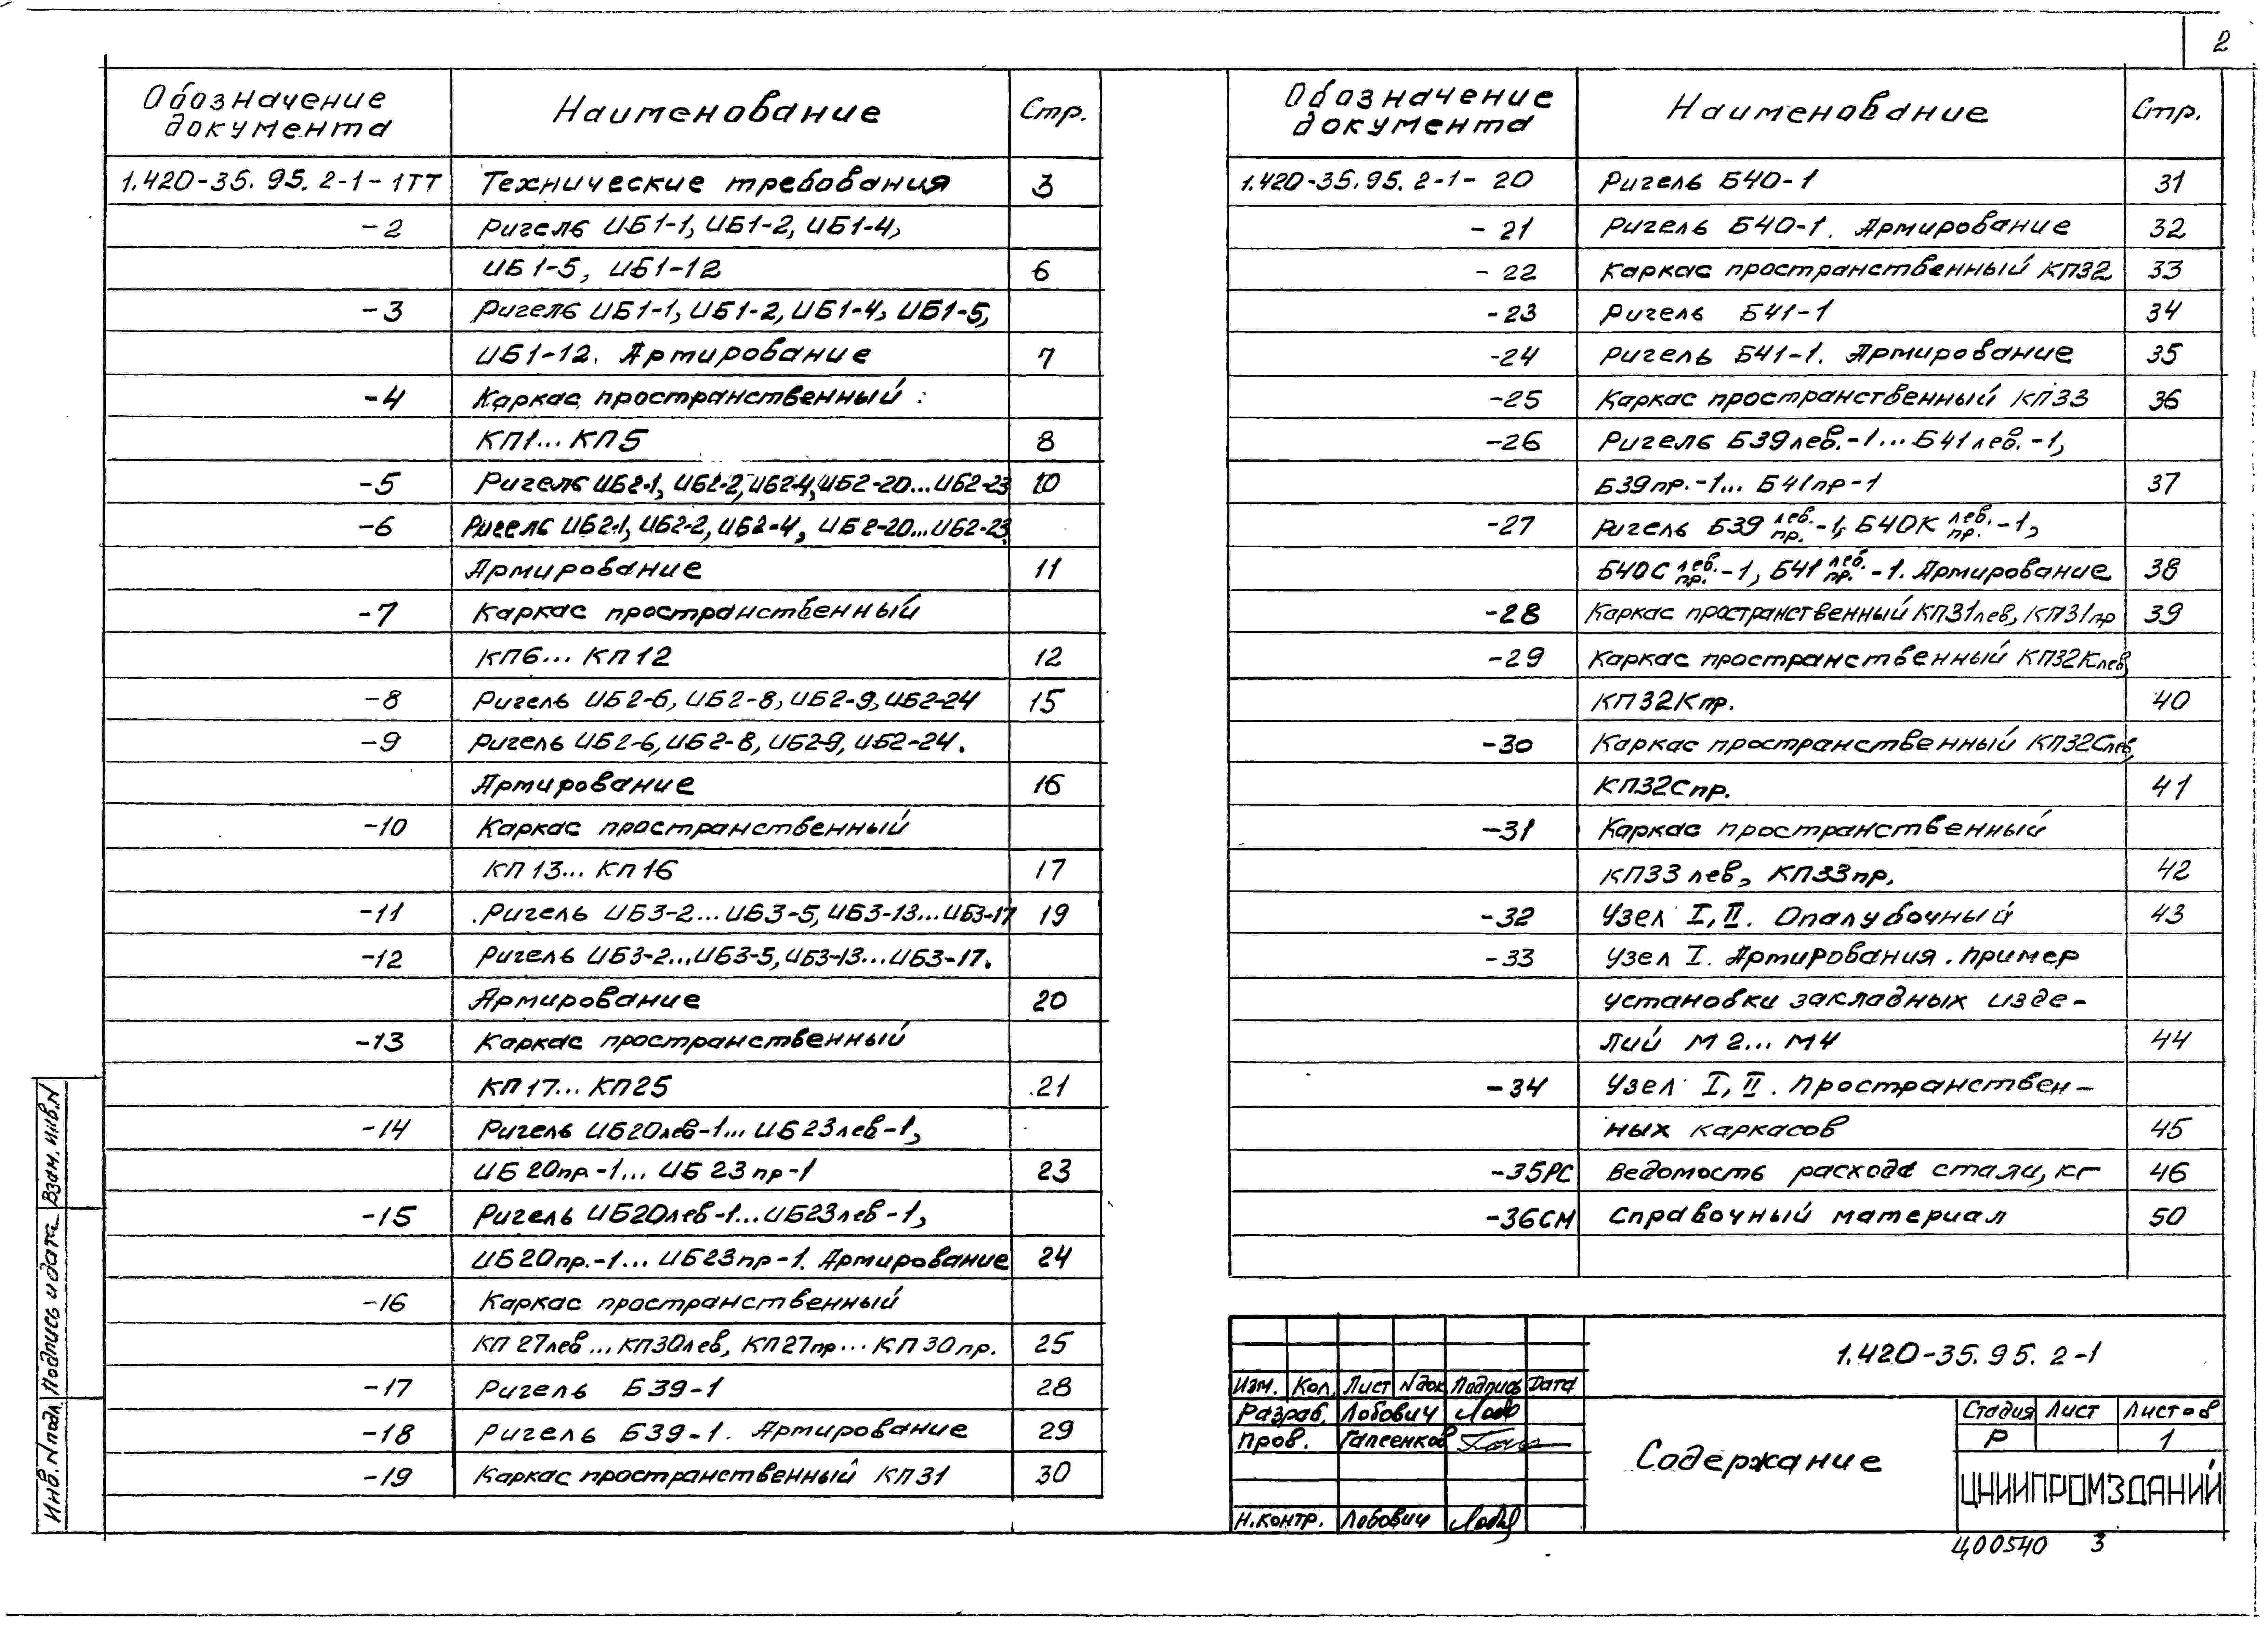 2
Обозначение документа Наименование Стр.
1.420-35.95.2-1-1ТТ Технические требования 3
-2 Ригель ИБ1-1, ИБ1-2, ИБ1-4,
ИБ1-5, ИБ1-12 6
-3 Ригель ИБ1-1, ИБ1-2, ИБ1-4, ИБ1-5,
ИБ1-12. Армирование 7
-4 Каркас пространственный
КП1...КП5 8
-5 Ригель ИБ2-1, ИБ2-2, ИБ2-4, ИБ2-20...ИБ2-23 10
-6 Ригель ИБ2-1, ИБ2-2, ИБ2-4, ИБ2-20...ИБ2-23.
Армирование 11
-7 Каркас пространственный
КП6...КП12 12
-8 Ригель ИБ2-6, ИБ2-8, ИБ2-9, ИБ2-24 15
-9 Ригель ИБ2-6, ИБ2-8, ИБ2-9, ИБ2-24.
Армирование 16
-10 Каркас пространственный
КП13...КП16 17
-11 Ригель ИБ3-2...ИБ3-5, ИБ3-13...ИБ3-17 19
-12 Ригель ИБ3-2...ИБ3-5, ИБ3-13...ИБ3-17.
Армирование 20
-13 Каркас пространственный
КП17...КП25 21
-14 Ригель ИБ20лев-1...ИБ23лев-1,
ИБ20пр-1...ИБ23пр-1 23
-15 Ригель ИБ20лев-1...ИБ23лев-1,
ИБ20пр.-1...ИБ23пр-1. Армирование 24
-16 Каркас пространственный
КП27лев...КП30лев, КП27пр...КП30пр. 25
-17 Ригель Б39-1 28
-18 Ригель Б39-1. Армирование 29
-19 Каркас пространственный КП31 30
Обозначение документа Наименование Стр.
1.420-35.95.2-1-20 Ригель Б40-1 31
-21 Ригель Б40-1. Армирование 32
-22 Каркас пространственный КП32 33
-23 Ригель Б41-1 34
-24 Ригель Б41-1. Армирование 35
-25 Каркас пространственный КП33 36
-26 Ригель Б39лев.-1...Б41лев.-1,
Б39пр.-1...Б41пр-1 37
-27 Ригель Б39 лев. пр. -1, Б40К лев. пр. -1,
Б40С лев. пр. -1, Б41 лев. пр. -1. Армирование 38
-28 Каркас пространственный КП31лев, КП31пр 39
-29 Каркас пространственный КП32Клев,
КП32Кпр. 40
-30 Каркас пространственный КП32Слев,
КП32Спр. 41
-31 Каркас пространственный
КП33лев, КП33пр. 42
-32 Узел I, II. Опалубочный 43
-33 Узел I. Армирования. Пример
установки закладных изде-
лий М2...М4 44
-34 Узел I, II. Пространствен-
ных каркасов 45
-35РС Ведомость расхода стали, кг 46
-36СМ Справочный материал 50
Взам. инв. N
Подпись и дата
Инв. N подл.
1.420-35.95.2-1
Изм. Кол. Лист N док. Подпись Дата
Разраб. Лобович
Пров. Гапеенков
Н.контр. Лобович
Содержание
Стадия Лист Листов
Р 1
ЦНИИПРОМЗДАНИЙ
Ц00540 3